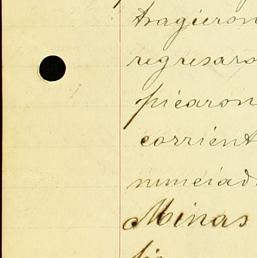 tragieron
regresaro
picaron
corrient
nunciad
Minas